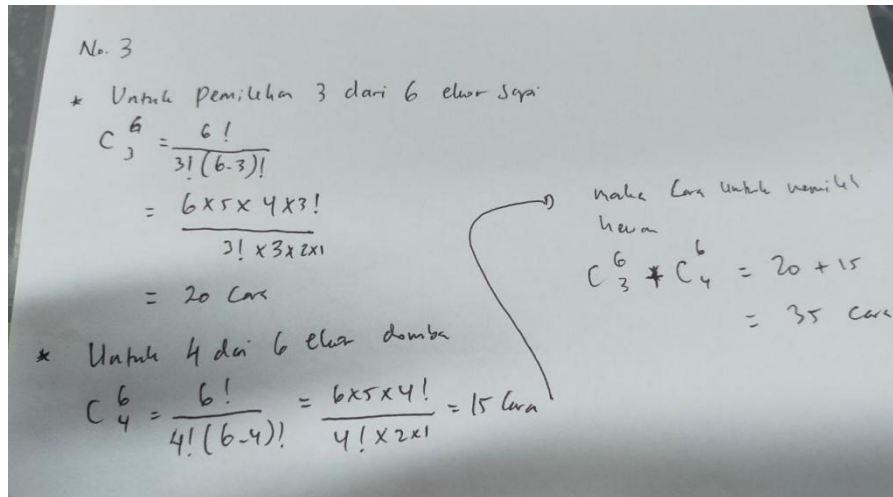 No. 3
* Untuk pemilihan 3 dari 6 ekor sapi
C 6 3 = 6! / 3!(6-3)!
= 6×5×4×3! / 3!×3×2×1
= 20 Cara
* Untuk 4 dari 6 ekor domba
C 6 4 = 6! / 4!(6-4)! = 6×5×4! / 4!×2×1 = 15 Cara
maka Cara untuk memilih
hewan
C 6 3 + C 6 4 = 20 + 15
= 35 Cara